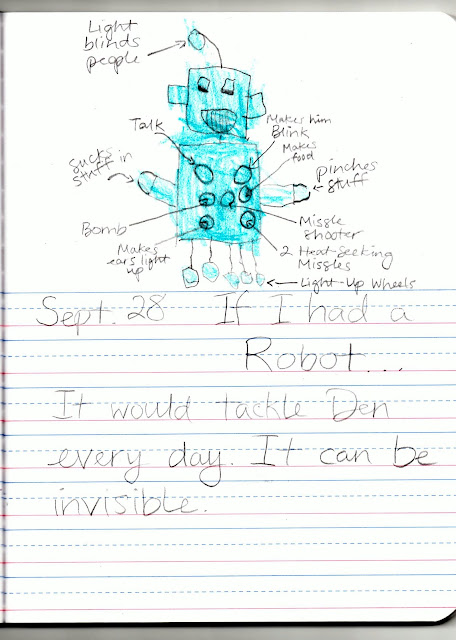 Light
blinds
people
Talk
Makes him
Blink
Makes
food
Sucks in
stuff
pinches
stuff
Bomb
Missle
shooter
Makes
ears light
up
2 Heat-Seeking
Missles
Light-Up Wheels
Sept. 28 If I had a
Robot...
It would tackle Den
every day. It can be
invisible.